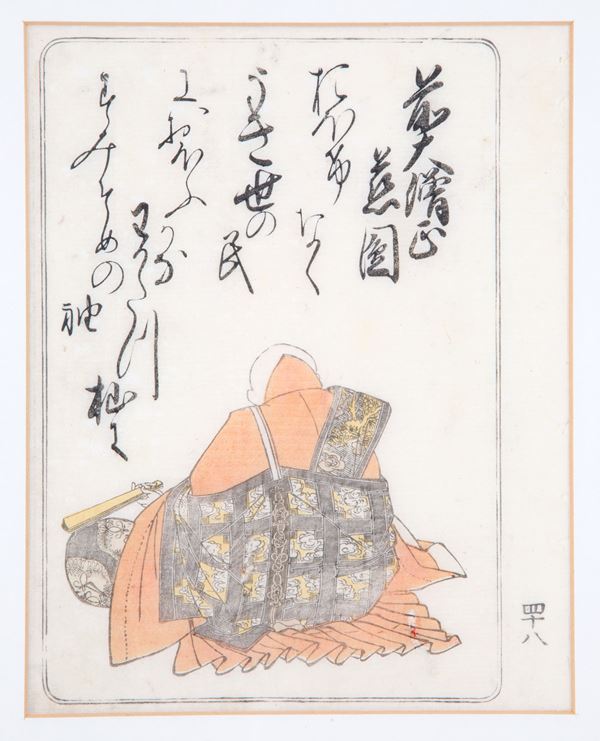 前大僧正
慈圓
おほけなく
うき世の民
におほふかな
わがたつ杣に
すみそめの袖
四十八